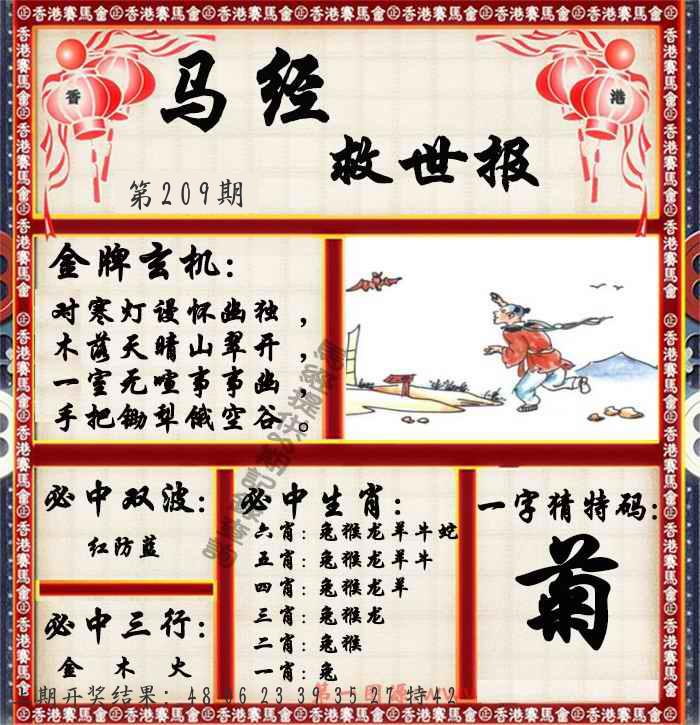 香港賽馬會
香 港
马经
救世报
第209期
金牌玄机：
对寒灯谩怀幽独，
木落天晴山翠开，
一室无喧事事幽，
手把锄犁饿空谷。
必中双波：
红防蓝
必中三行：
金 木 火
必中生肖：
六肖：兔猴龙羊牛蛇
五肖：兔猴龙羊牛
四肖：兔猴龙羊
三肖：兔猴龙
二肖：兔猴
一肖：兔
一字猜特码：
菊
期开奖结果：48 06 23 39 35 27 特42